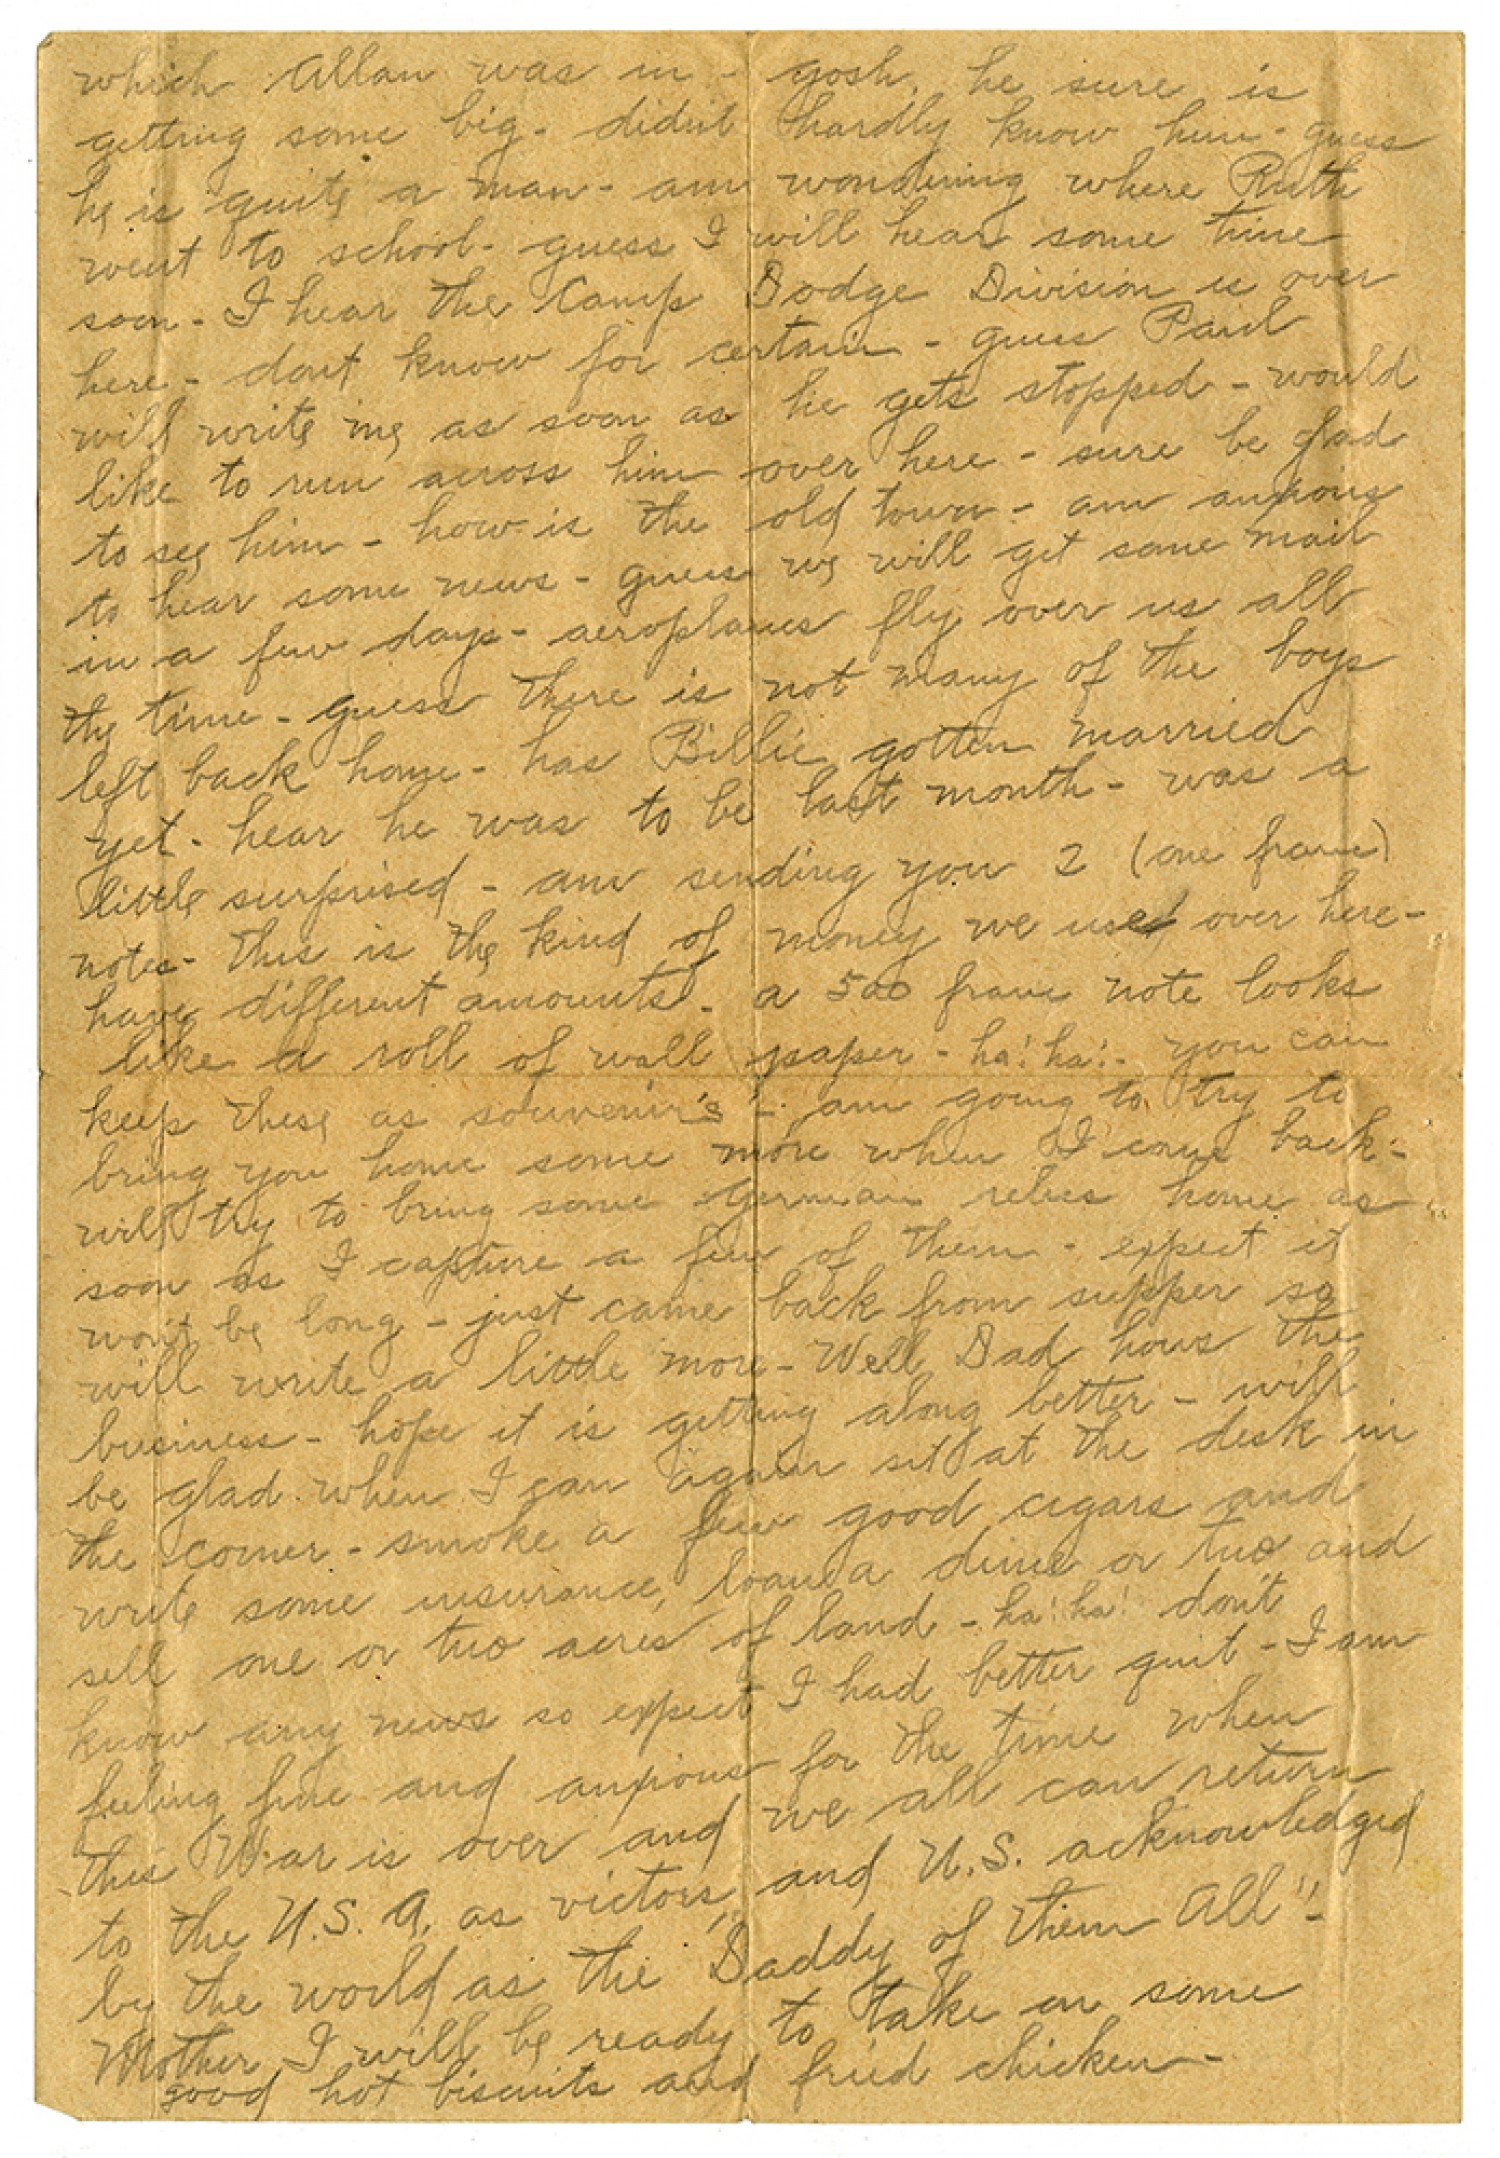 which Allan was in - gosh, he sure is
getting some big - didn't hardly know him - guess
he is quite a man - am wondering where Ruth
went to school - guess I will hear some time
soon - I hear the Camp Dodge Division is over
here - dont know for certain - guess Paul
will write me as soon as he gets stopped - would
like to run across him over here - sure be glad
to see him - how is the old town - am anxious
to hear some news - guess we will get some mail
in a few days - aeroplanes fly over us all
the time - guess there is not many of the boys
left back home - has Billie gotten married
yet - hear he was to be last month - was a
little surprised - am sending you 2 (one franc)
notes - this is the kind of money we used over here -
have different amounts - a 500 franc note looks
like a roll of wall paper - ha! ha! - you can
keep these as souvenir's - am going to try to
bring you home some more when I come back -
will try to bring some German relics home as
soon as I capture a few of them - expect it
won't be long - just came back from supper so
will write a little more - Well Dad hows the
business - hope it is getting along better - will
be glad when I can again sit at the desk in
the corner - smoke a few good cigars and
write some insurance, loan a dime or two and
sell one or two acres of land - ha! ha! don't
know any news so expect I had better quit - I am
feeling fine and anxious for the time when
this War is over and we all can return
to the U.S.A. as victors, and U.S. acknowledged
by the world as the "Daddy of them All" -
Mother I will be ready to take on some
good hot biscuits and fried chicken -